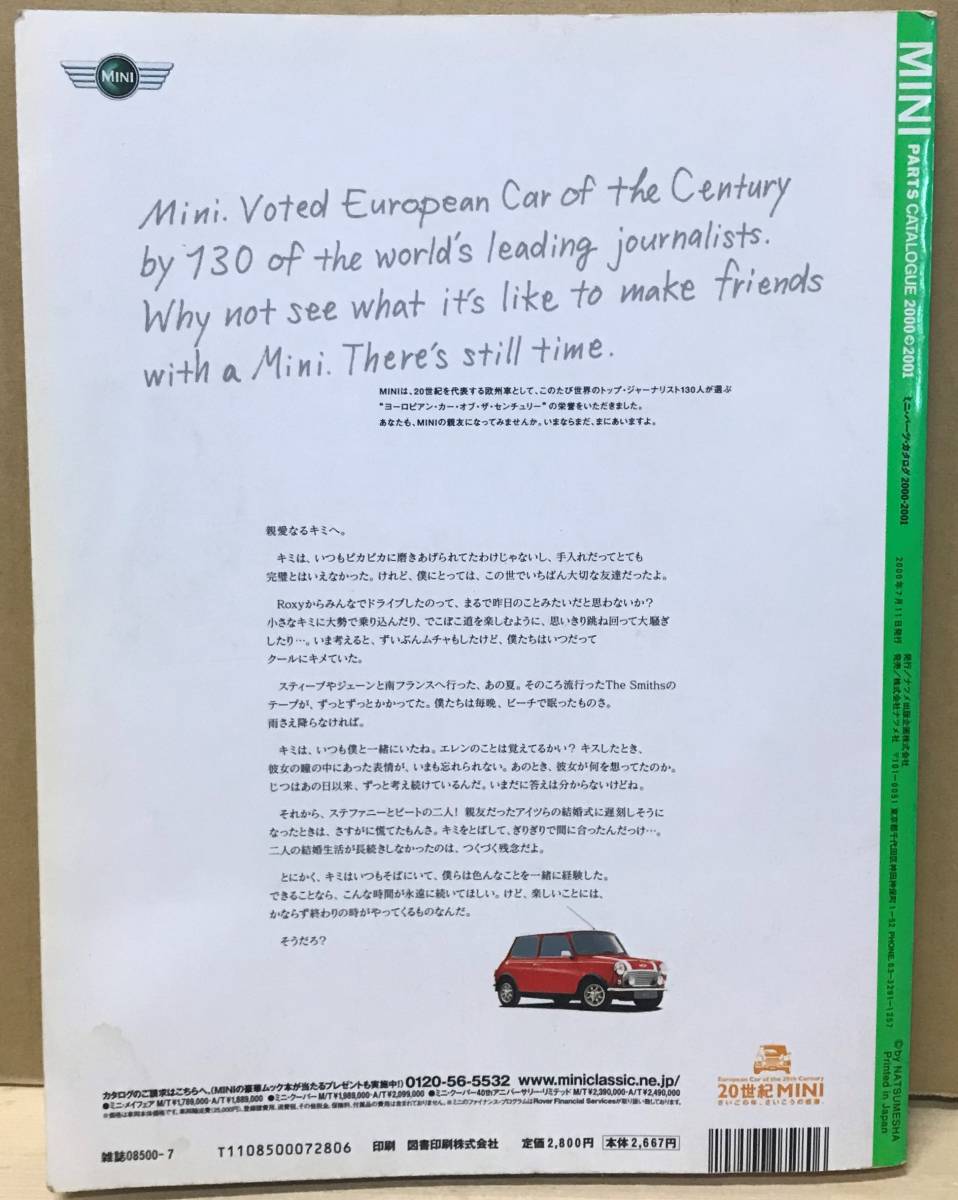 MINI
Mini. Voted European Car of the Century
by 130 of the world's leading journalists.
Why not see what it's like to make friends
with a Mini. There's still time.
MINIは、20世紀を代表する欧州車として、このたび世界のトップ・ジャーナリスト130人が選ぶ
“ヨーロピアン・カー・オブ・ザ・センチュリー”の栄誉をいただきました。
あなたも、MINIの親友になってみませんか。いまならまだ、まにあいますよ。
親愛なるキミへ。
キミは、いつもピカピカに磨きあげられてたわけじゃないし、手入れだってとても
完璧とはいえなかった。けれど、僕にとっては、この世でいちばん大切な友達だったよ。
Roxyからみんなでドライブしたのって、まるで昨日のことみたいだと思わないか?
小さなキミに大勢で乗り込んだり、でこぼこ道を楽しむように、思いきり跳ね回って大騒ぎ
したり…。いま考えると、ずいぶんムチャもしたけど、僕たちはいつだって
クールにキメていた。
スティーブやジェーンと南フランスへ行った、あの夏。そのころ流行ったThe Smithsの
テープが、ずっとずっとかかってた。僕たちは毎晩、ビーチで眠ったものさ。
雨さえ降らなければ。
キミは、いつも僕と一緒にいたね。エレンのことは覚えてるかい? キスしたとき、
彼女の瞳の中にあった表情が、いまも忘れられない。あのとき、彼女が何を想ってたのか。
じつはあの日以来、ずっと考え続けているんだ。いまだに答えは分からないけどね。
それから、ステファニーとピートの二人! 親友だったアイツらの結婚式に遅刻しそうに
なったときは、さすがに慌てたもんさ。キミをとばして、ぎりぎりで間に合ったんだっけ…。
二人の結婚生活が長続きしなかったのは、つくづく残念だよ。
とにかく、キミはいつもそばにいて、僕らは色んなことを一緒に経験した。
できることなら、こんな時間が永遠に続いてほしい。けど、楽しいことには、
かならず終わりの時がやってくるものなんだ。
そうだろ?
カタログのご請求はこちらへ。(MINIの豪華ムック本が当たるプレゼントも実施中!) 0120-56-5532 www.miniclassic.ne.jp/
●ミニ・メイフェア M/T¥1,789,000・A/T¥1,889,000 ●ミニ・クーパー M/T¥1,989,000・A/T¥2,099,000 ●ミニ・クーパー40thアニバーサリーリミテッド M/T¥2,390,000・A/T¥2,490,000
※価格は車両本体価格です。車両輸送費(25,000円)、登録諸費用、消費税、その他税金、保険料、付属品の費用は含まれておりません。 ※ミニのファイナンス・プログラムはRover Financial Servicesが取り扱い致しております。
European Car of the 20th Century
20世紀MINI
さいごの年、さいこうの感謝。
雑誌08500-7
T1108500072806 印刷 図書印刷株式会社 定価2,800円 本体2,667円
MINI PARTS CATALOGUE 2000©2001 ミニ・パーツ・カタログ 2000-2001
2000年7月11日発行
発行/ナツメ出版企画株式会社
発売/株式会社ナツメ社 〒101-0051 東京都千代田区神田神保町1-52 PHONE. 03-3291-1257
©by NATSUMESHA
Printed in Japan